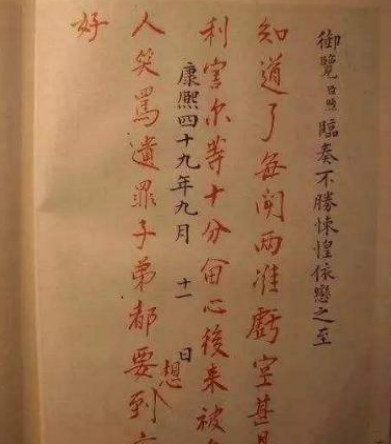 御覽臣煦臨奏不勝悚惶依戀之至
知道了每闻两准虧空甚是
利害尔等十分畄心後来被
康熙四十九年九月 十一 日
人笑罵遺罪子弟都要想到
好